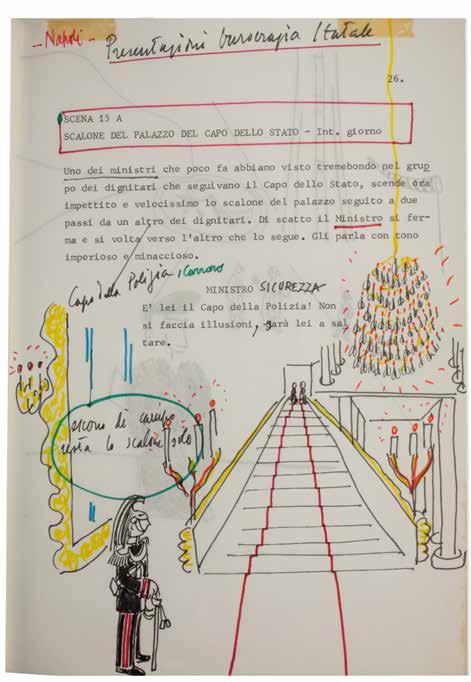 - Napoli -
Presentazioni burocrazia statale
26.
SCENA 15 A
SCALONE DEL PALAZZO DEL CAPO DELLO STATO - Int. giorno
Uno dei ministri che poco fa abbiamo visto tremebondo nel grup
po dei dignitari che seguivano il Capo dello Stato, scende ora
impettito e velocissimo lo scalone del palazzo seguito a due
passi da un altro dei dignitari. Di scatto il Ministro si fer-
ma e si volta verso l'altro che lo segue. Gli parla con tono
imperioso e minaccioso.
Capo della Polizia
MINISTRO SICUREZZA
E' lei il Capo della Polizia! Non
si faccia illusioni, sarà lei a sal
tare.
escono di campo
resta lo scalone solo